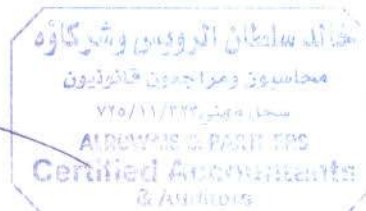 خالد سلطان الرويس وشركاؤه
محاسبون ومراجعون قانونيون
سجل مهني ٧٢٥/١١/٣٢٣
ALROWAIS & PARTNERS
Certified Accountants
& Auditors